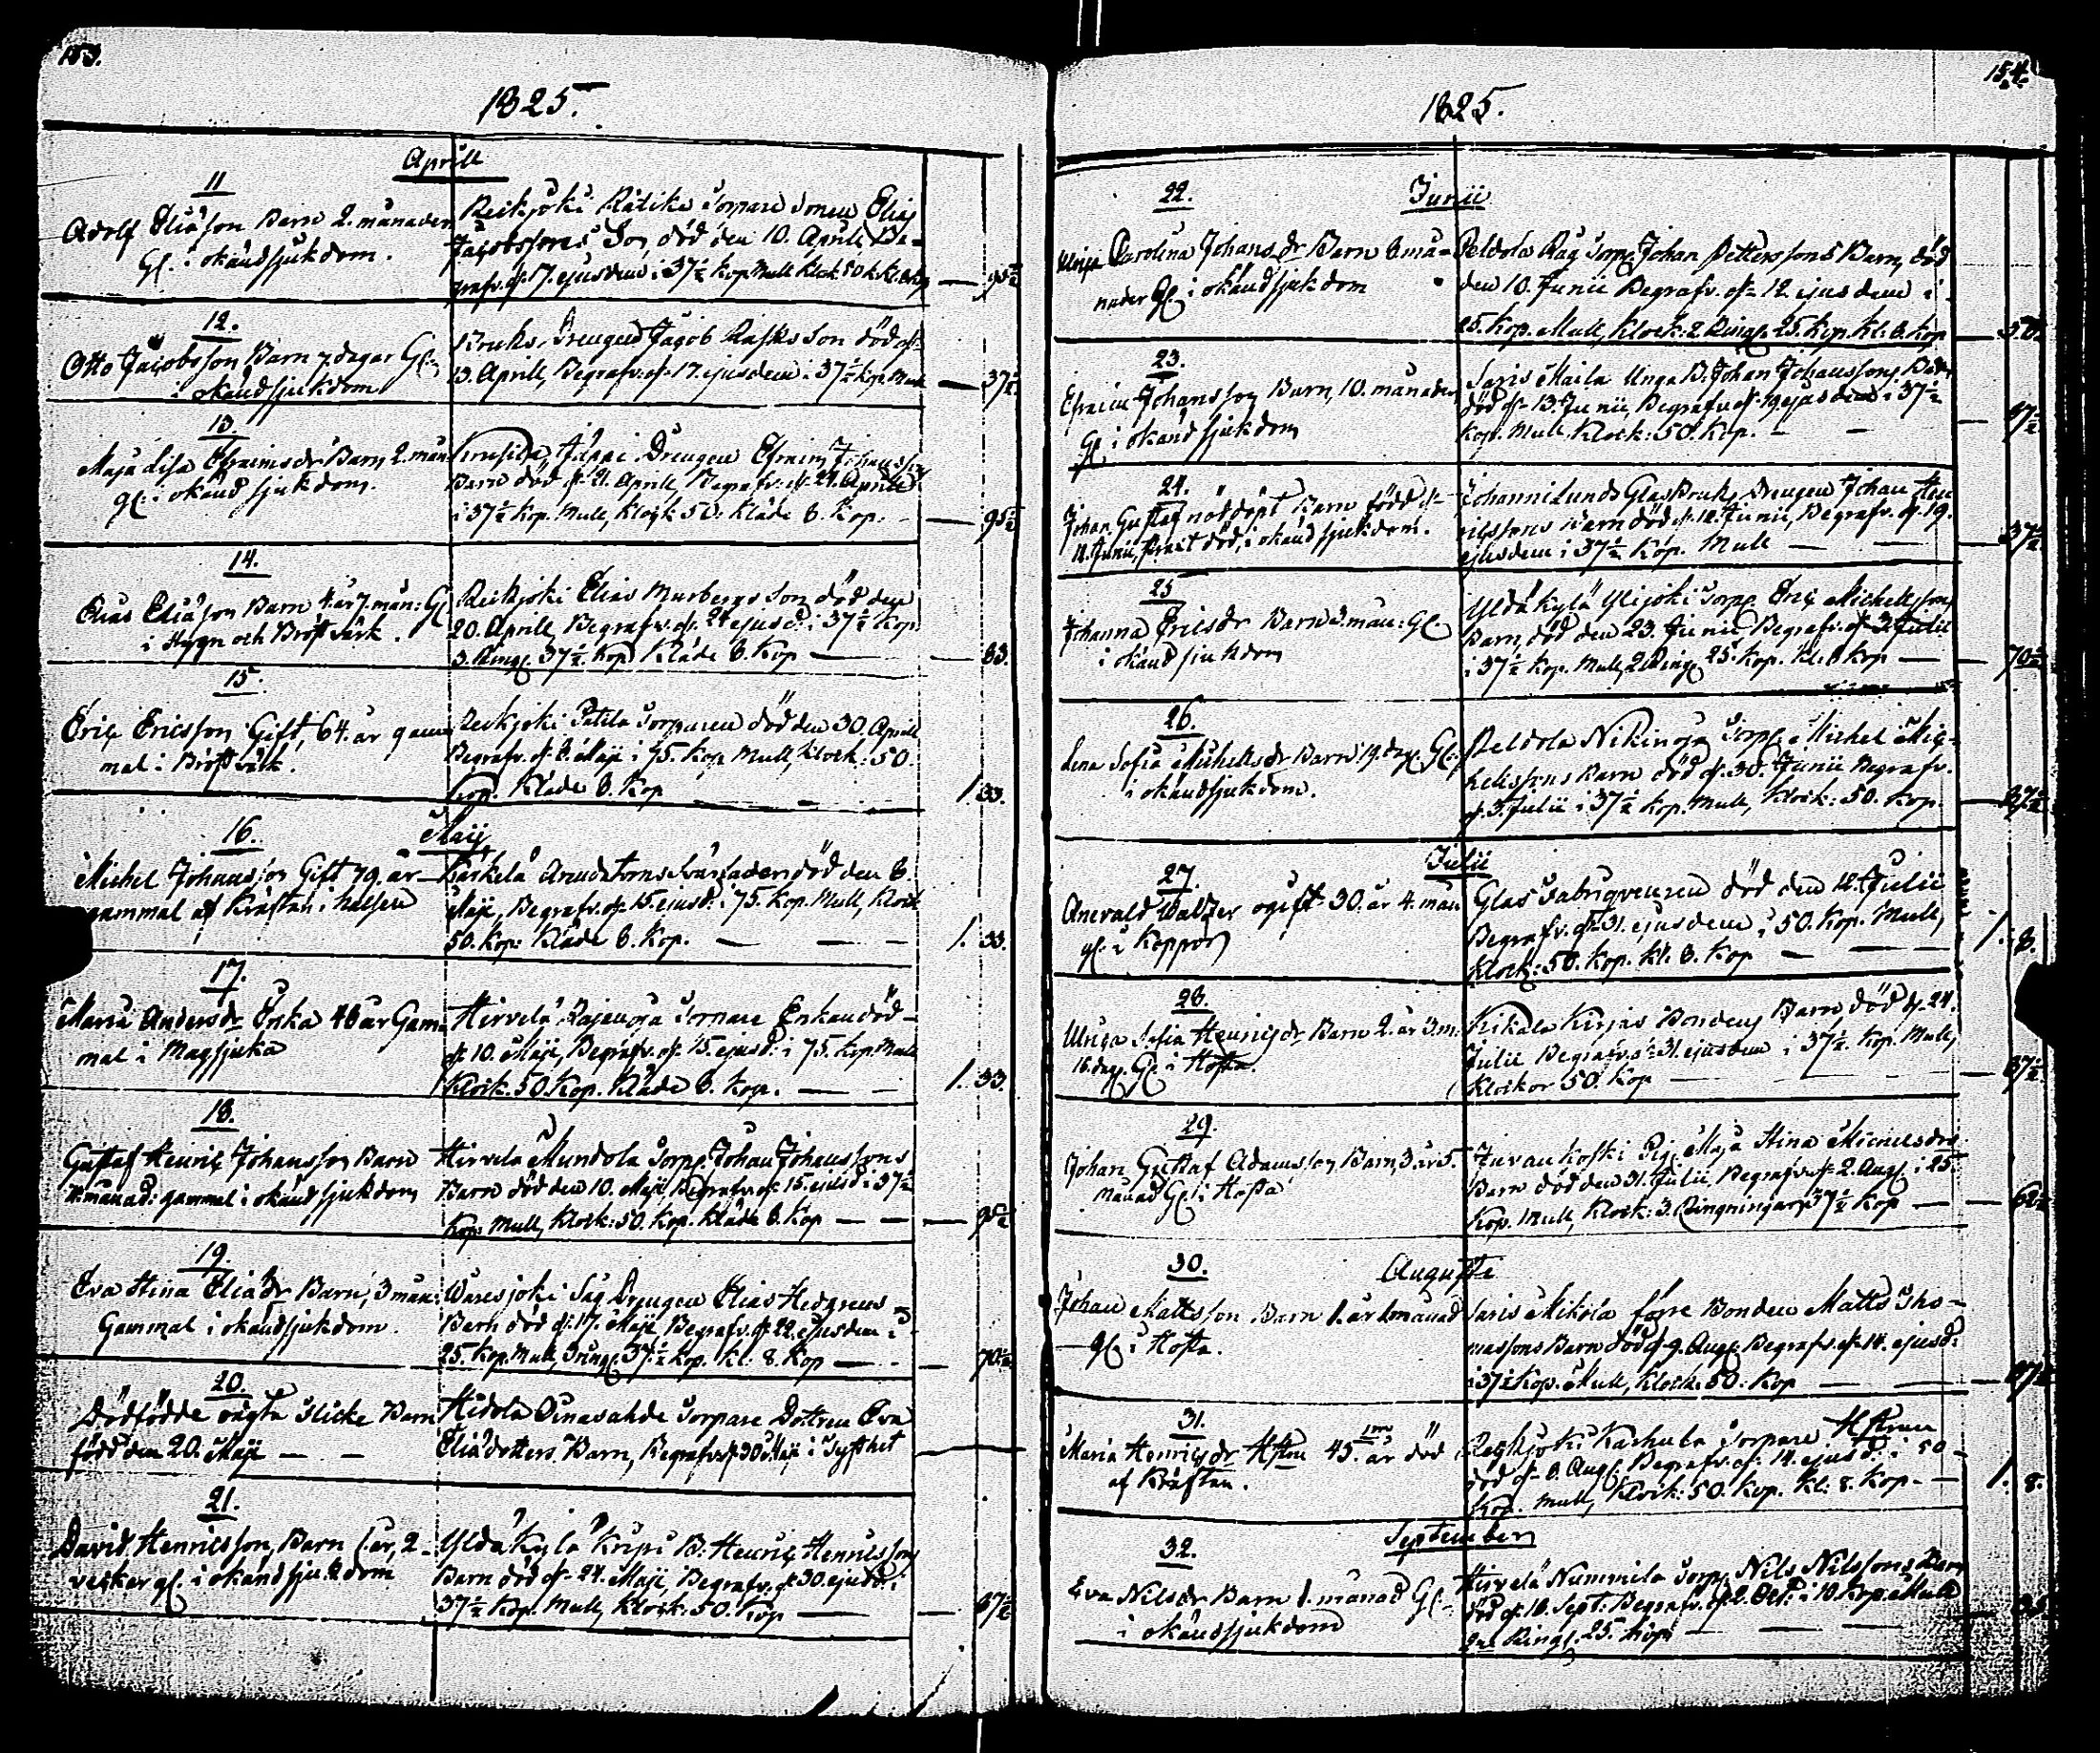 153.
1825.
Aprill
11
Adolf Eliasson Barn 2. månader
Gl. i okänd sjukdom.
Reikjoki Rätikä Torpare Sonen Elias
Jacobssons Son död den 10. Aprill Be-
grafv. d. 17. ejusdem i 37½ Kop. Mull Klock. 50 k. Kl. 8 kop
95½
12.
Otto Jacobsson Barn 7. dagar Gl.
i okänd sjukdom
Bruks Drengen Jacob Rasks Son död d.
13. Aprill, Begrafv. d. 17. ejusdem i 37½ Kop. Mull
37½
13.
Maja Lisa Efraimsdr Barn 2. mån.
gl. i okänd sjukdom.
Jäppi Drengen Efraim Johansson
Barn död d. 21. Aprill, Begrafv. d. 24. Aprill
i 37½ Kop. Mull, Klock 50. Kläde 8. Kop.
95½
14.
Elias Eliasson Barn 4. år 7. mån: Gl.
i Hygn och Bröstvärk.
Reikjoki Elias Murbergs Son död den
20. Aprill, Begrafv. d. 24 ejusd. i 37½ Kop.
3. Ringl. 37½ Kop. Kläde 8. Kop
83.
15.
Eric Ericsson Gift, 64. år gam
mal i Bröstvärk.
Reikjoki Torparen död den 30. Aprill
Begrafv. d. 8. Maji i 75. Kop. Mull, Klock: 50.
Kop. Kläde 8. Kop
1. 33.
16.
Maji
Michel Johansson Gift 79. år
gammal af Kräftan i halsen
Kärkelä Arendators Svärfader död den 8.
Maji, Begrafv. d. 15. ejusd. i 75. Kop. Mull, Klock
50. Kop: Kläde 8. Kop.
1. 33.
17.
Maria Andersdr Enka 48 år Gam
mal i Magsjuka
Hirvelä Rajanoja Torpare Enkan död
d. 10. Maji, Begrafv. d. 15. ejusd. i 75. Kop. Mull
Klock. 50. Kop. Kläde 8. Kop.
1. 33.
18.
Gustaf Henric Johansson Barn
månad. gammal i okänd sjukdom
Hirvelä Mundola Torp. Johan Johanssons
Barn död den 10. Maji, Begrafv. d. 15. ejusd i 37½
Kop. Mull, Klock: 50. Kop. Kläde 8. Kop
95½
19.
Eva Stina Eliädr Barn, 3 mån:
Gammal i okänd sjukdom.
Waresjoki Såg Drengen Elias Hedgrens
Barn död d. 17. Maji, Begrafv. d. 22. ejusdem i
25. Kop. Mull, 3 ringl. 37½ Kop. Kl: 8. Kop
70½
20.
Dödfödde oägta Flicke Barn
född den 20. Maji
Hidola Torpare Dottren Eva
Eliädotters Barn, Begrafv. d. 30 Maji i Tysthet
21.
David Henricsson, Barn 1 år, 2
veckor gl. i okänd sjukdom
Yldäkylä B. Henric Henricssons
Barn död d. 24. Maji, Begrafv. d. 30. ejusd. i
37½ Kop. Mull, Klock: 50. Kop
87½
154.
1825.
22.
Junii
Carolina Johansdr Barn 6. må-
nader Gl. i okänd sjukdom
Peldola Rag Torp. Johan Petterssons Barn, död
den 10. Junii Begrafv. d. 12. ejusdem i
25. Kop. Mull, Klock: 2 Ringl. 25. Kop. Kl: 8. Kop
23.
Efraim Johansson Barn, 10. månader
Gl. i okänd sjukdom
Saris Maila Unga B. Johan Johanssons Barn
död d. 13. Junii, Begrafv. d. 19. ejusdem i 37½
Kop. Mull, Klock: 50. Kop.
87½
24.
Johan Gustaf nöddöpt Barn född d.
12. Junii, död, i okänd sjukdom.
Johannislunds Glasbruks Drengen Johan Hen
ricssons Barn död d. 12. Junii, Begrafv. d. 19.
ejusdem i 37½ Kop. Mull
37½
25
Johanna Ericsdr Barn 3. mån: Gl.
i okänd sjukdom
Yldäkylä Ylijoki Torp. Eric Michelssons
Barn, död den 23. Junii, Begrafv. d. 3. Julii
i 37½ Kop. Mull, 2 Ringl. 25. Kop. Kl: 8 Kop
70½
26.
Lena Sofia Michelsdr Barn 19. dag. Gl.
i okändsjukdom.
Peldola Nikinoja Torp. Michel Mic-
helssons Barn död d. 30. Junii Begrafv.
d. 3. Julii i 37½ Kop. Mull, Klock: 50. Kop.
87½
27.
Julii
Walzer ogift 30. år 4. mån
gl. i Koppor
Glas död den 12. Julii
Begrafv. d. 31. ejusdem i 50. Kop. Mull,
Klock: 50. Kop. Kl. 8. Kop
1. 8.
28.
Ulrica Sofia Henricsdr Barn 2. år 3. m.
16. dag. Gl. i Hosta.
Kikala Kirjas Bondens Barn, död d. 24.
Julii Begrafv. d. 31. ejusdem i 37½. Kop. Mull,
Klockor 50. Kop
87½
29.
Johan Gustaf Adamsson Barn, 3. år 5.
månad Gl. i Hosta
Juvankoski Pig. Maja Stina Michelsdrs
Barn död den 31. Julii, Begrafv. d. 2. Aug. i 25
Kop. Mull, Klock: 3. Ringningar 37½ Kop
62½
30.
Augusti
Johan Mattsson Barn 1. år 1 månad
gl. i Hosta.
Saris Mikola förre Bonden Matts Tho-
massons Barn död d. 9. Aug. Begrafv. d. 14. ejusd:
i 37½ Kop. Mull, Klock: 50. Kop
87½
31.
Maria Henricsdr Hstru 45. år död
af Kräftan.
Reikjoki Karhula Torpare Hstrun
död d. 8. Aug. Begrafv. d. 14. ejusd. i 50
Kop. Mull, Klock: 50. Kop. Kl: 8. Kop.
1. 8.
32.
September
Eva Nilsdr Barn 1. månad Gl.
i okändsjukdom
Hirvelä Nummila Torp. Nils Nilssons Barn
död d. 18. Sept. Begrafv. d. 2. Oct. i 10. Kop. Mull
Ringl. 25. Kop.